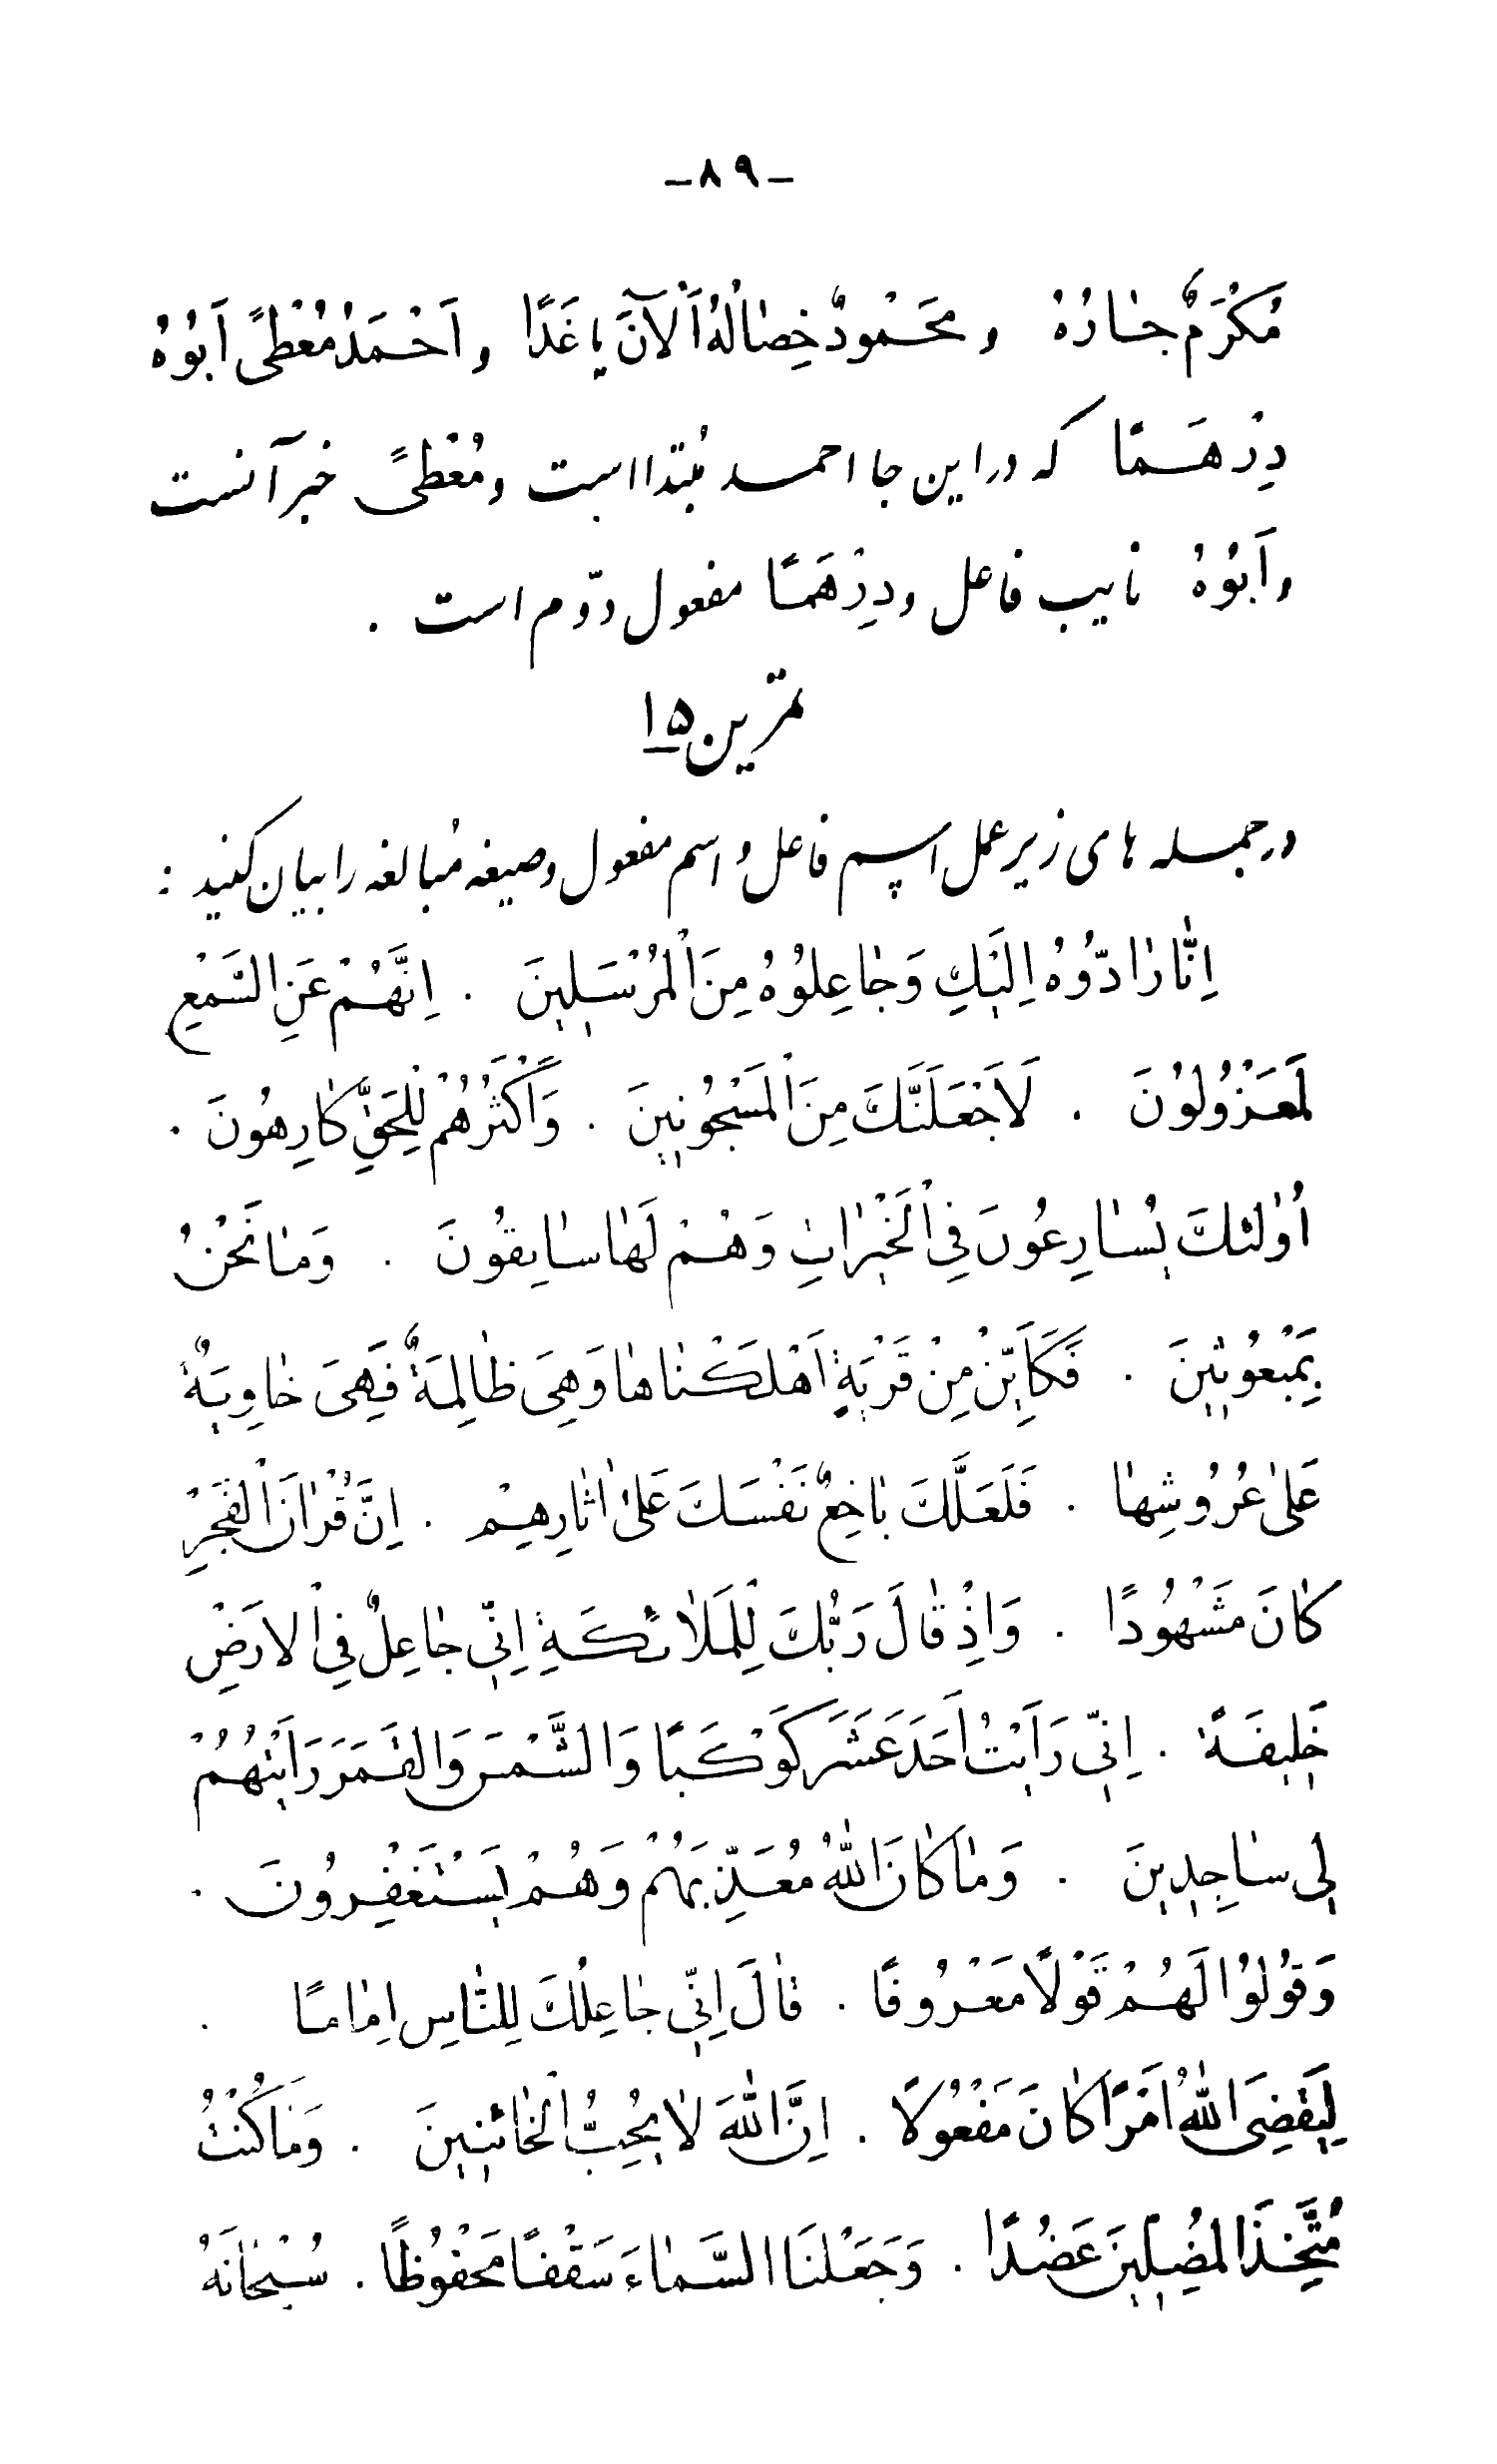 -۸۹-
مُكْرَمٌ جٰارُهُ و مَحْمودٌ خِصٰالُهُ اَلْآنَ يا غَدًا و اَحْمَدُ مُعْطىً اَبُوُهُ
دِرْهَمًا که در این جا احمد مُبتدا است و مُعْطىً خبر آنست
و اَبُوُهُ نایب فاعل و دِرْهَمًا مفعول دوّم است .
تمرین ۱۵
در جمله های زیر عمل اسم فاعل و اسم مفعول و صیغه مُبالغه را بیان کنید :
اِنّٰا رٰادُّوُهُ اِلَيْكِ وَجٰاعِلوُهُ مِنَ الْمُرْسَلينَ . اِنَّهُمْ عَنِ السَّمْعِ
لَمَعْزُولُوْنَ . لَاَجْعَلَنَّكَ مِنَ الْمَسْجُونينَ . وَاَكْثَرُهُمْ لِلْحَقِّ كٰارِهُونَ .
اُوْلٰئكَ يُسٰارِعُونَ فِى الْخَيْرٰاتِ وَهُمْ لَهٰا سٰابِقُونَ . وَمٰا نَحْنُ
بِمَبْعُوثينَ . فَكَاَيِّنْ مِنْ قَرْيَةٍ اَهْلَكْنٰاهٰا وَهِىَ ظٰالِمَةٌ فَهِىَ خٰاوِيَةٌ
عَلىٰ عُرُوشِهٰا . فَلَعَلَّكَ بٰاخِعٌ نَفْسَكَ عَلىٰ اٰثٰارِهِمْ . اِنَّ قُرْاٰنَ الْفَجْرِ
كٰانَ مَشْهُودًا . وَاِذْ قٰالَ رَبُّكَ لِلْمَلٰائكَةِ اِنّى جٰاعِلٌ فِى الْارَضِْ
خَليفَةً . اِنّى رَاَيْتُ اَحَدَ عَشَرَ كَوْكَبًا وَالشَّمْسَ وَالْقَمَرَ رَاَيْتُهُمْ
لى سٰاجِدينَ . وَمٰا كٰانَ اللّٰهُ مُعَذِّبَهُمْ وَهُمْ يَسْتَغْفِرُونَ .
وَقوُلوُا لَهُمْ قَوْلًا مَعْرُوفًا . قٰالَ اِنّى جٰاعِلُكَ لِلنّٰاسِ اِمٰامًا .
لِيَقْضِىَ اللّٰهُ اَمْرًا كٰانَ مَفْعُولًا . اِنَّ اللّٰهَ لٰا يُحِبُّ الْخٰائنينَ . وَمٰا كُنْتُ
مُتَّخِذَ الْمُضِلّينَ عَضُدًا . وَجَعَلْنَا السَّمٰاءَ سَقْفًا مَحْفُوظًا . سُبْحٰانَهُ